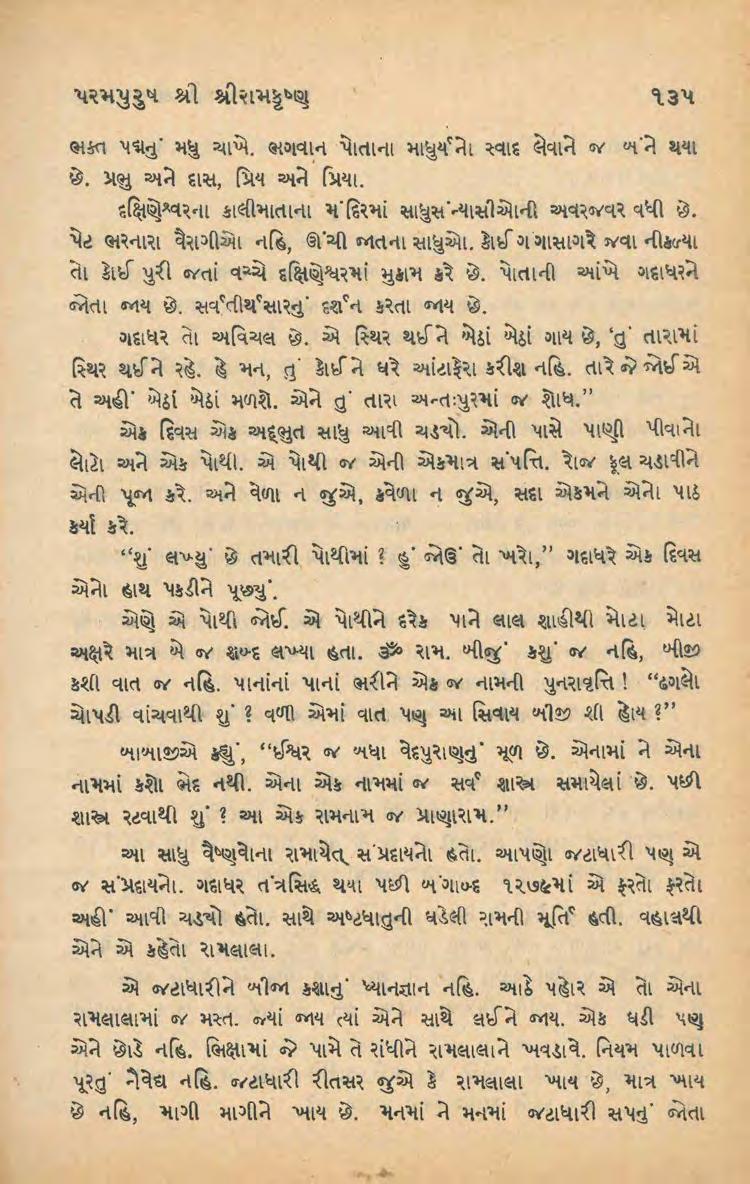 પરમપુરુષ શ્રી શ્રીરામકૃષ્ણ ૧૩૫
ભક્ત પદ્મનું મધુ ચાખે. ભગવાન પોતાના માધુર્યનો સ્વાદ લેવાને જ બંને થયા
છે. પ્રભુ અને દાસ, પ્રિય અને પ્રિયા.
દક્ષિણેશ્વરના કાલીમાતાના મંદિરમાં સાધુસંન્યાસીઓની અવરજવર વધી છે.
પેટ ભરનારા વૈરાગીઓ નહિ, ઊંચી જાતના સાધુઓ. કોઈ ગંગાસાગરે જવા નીકળ્યા
તો કોઈ પુરી જતાં વચ્ચે દક્ષિણેશ્વરમાં મુકામ કરે છે. પોતાની આંખે ગદાધરને
જોતા જાય છે. સર્વતીર્થસારનું દર્શન કરતા જાય છે.
ગદાધર તો અવિચલ છે. એ સ્થિર થઈને બેઠાં બેઠાં ગાય છે, ‘તું તારામાં
સ્થિર થઈને રહે. હે મન, તું કોઈને ઘરે આંટાફેરા કરીશ નહિ. તારે જે જોઈએ
તે અહીં બેઠાં બેઠાં મળશે. એને તું તારા અન્તઃપુરમાં જ શોધ.”
એક દિવસ એક અદ્ભુત સાધુ આવી ચડ્યો. એની પાસે પાણી પીવાનો
લોટો અને એક પોથી. એ પોથી જ એની એકમાત્ર સંપત્તિ. રોજ ફૂલ ચડાવીને
એની પૂજા કરે. અને વેળા ન જુએ, કવેળા ન જુએ, સદા એકમને એનો પાઠ
કર્યા કરે.
“શું લખ્યું છે તમારી પોથીમાં ? હું જોઉં તો ખરો,” ગદાધરે એક દિવસ
એનો હાથ પકડીને પૂછ્યું.
એણે એ પોથી જોઈ. એ પોથીને દરેક પાને લાલ શાહીથી મોટા મોટા
અક્ષરે માત્ર બે જ શબ્દ લખ્યા હતા. ૐ રામ. બીજું કશું જ નહિ, બીજી
કશી વાત જ નહિ. પાનાંનાં પાનાં ભરીને એક જ નામની પુનરાવૃત્તિ ! “ઢગલો
ચોપડી વાંચવાથી શું ? વળી એમાં વાત પણ આ સિવાય બીજી શી હોય ?”
બાબાજીએ કહ્યું, “ઈશ્વર જ બધા વેદપુરાણનું મૂળ છે. એનામાં ને એના
નામમાં કશો ભેદ નથી. એના એક નામમાં જ સર્વ શાસ્ત્ર સમાયેલાં છે. પછી
શાસ્ત્ર રટવાથી શું ? આ એક રામનામ જ પ્રાણારામ.”
આ સાધુ વૈષ્ણવોના રામાયેત્ સંપ્રદાયનો હતો. આપણો જટાધારી પણ એ
જ સંપ્રદાયનો. ગદાધર તંત્રસિદ્ધ થયા પછી બંગાબ્દ ૧૨૭૯માં એ ફરતો ફરતો
અહીં આવી ચડ્યો હતો. સાથે અષ્ટધાતુની ઘડેલી રામની મૂર્તિ હતી. વહાલથી
એને એ કહેતો રામલાલા.
એ જટાધારીને બીજા કશાનું ધ્યાનજ્ઞાન નહિ. આઠે પહોર એ તો એના
રામલાલામાં જ મસ્ત. જ્યાં જાય ત્યાં એને સાથે લઈને જાય. એક ઘડી પણ
એને છોડે નહિ. ભિક્ષામાં જે પામે તે રાંધીને રામલાલાને ખવડાવે. નિયમ પાળવા
પૂરતું નૈવેદ્ય નહિ. જટાધારી રીતસર જુએ કે રામલાલા ખાય છે, માત્ર ખાય
છે નહિ, માગી માગીને ખાય છે. મનમાં ને મનમાં જટાધારી સપનું જોતા